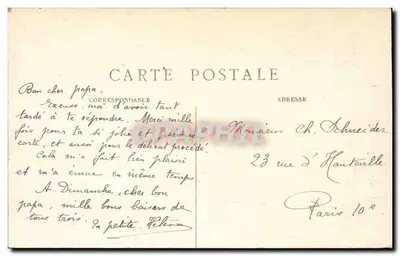 CARTE POSTALE
CORRESPONDANCE
ADRESSE
Bon cher papa,
Excuse-moi d'avoir tant
tardé à te répondre. Merci mille
fois pour ta si jolie et
carte, et aussi pour le délicat procédé
Cela m'a fait très plaisir
et m'a émue en même temps
A Dimanche, cher bon
papa, mille bons baisers de
tous trois. Ta petite Hélène
Monsieur Ch. Schneider
23 rue d'Hauteville
Paris 10e